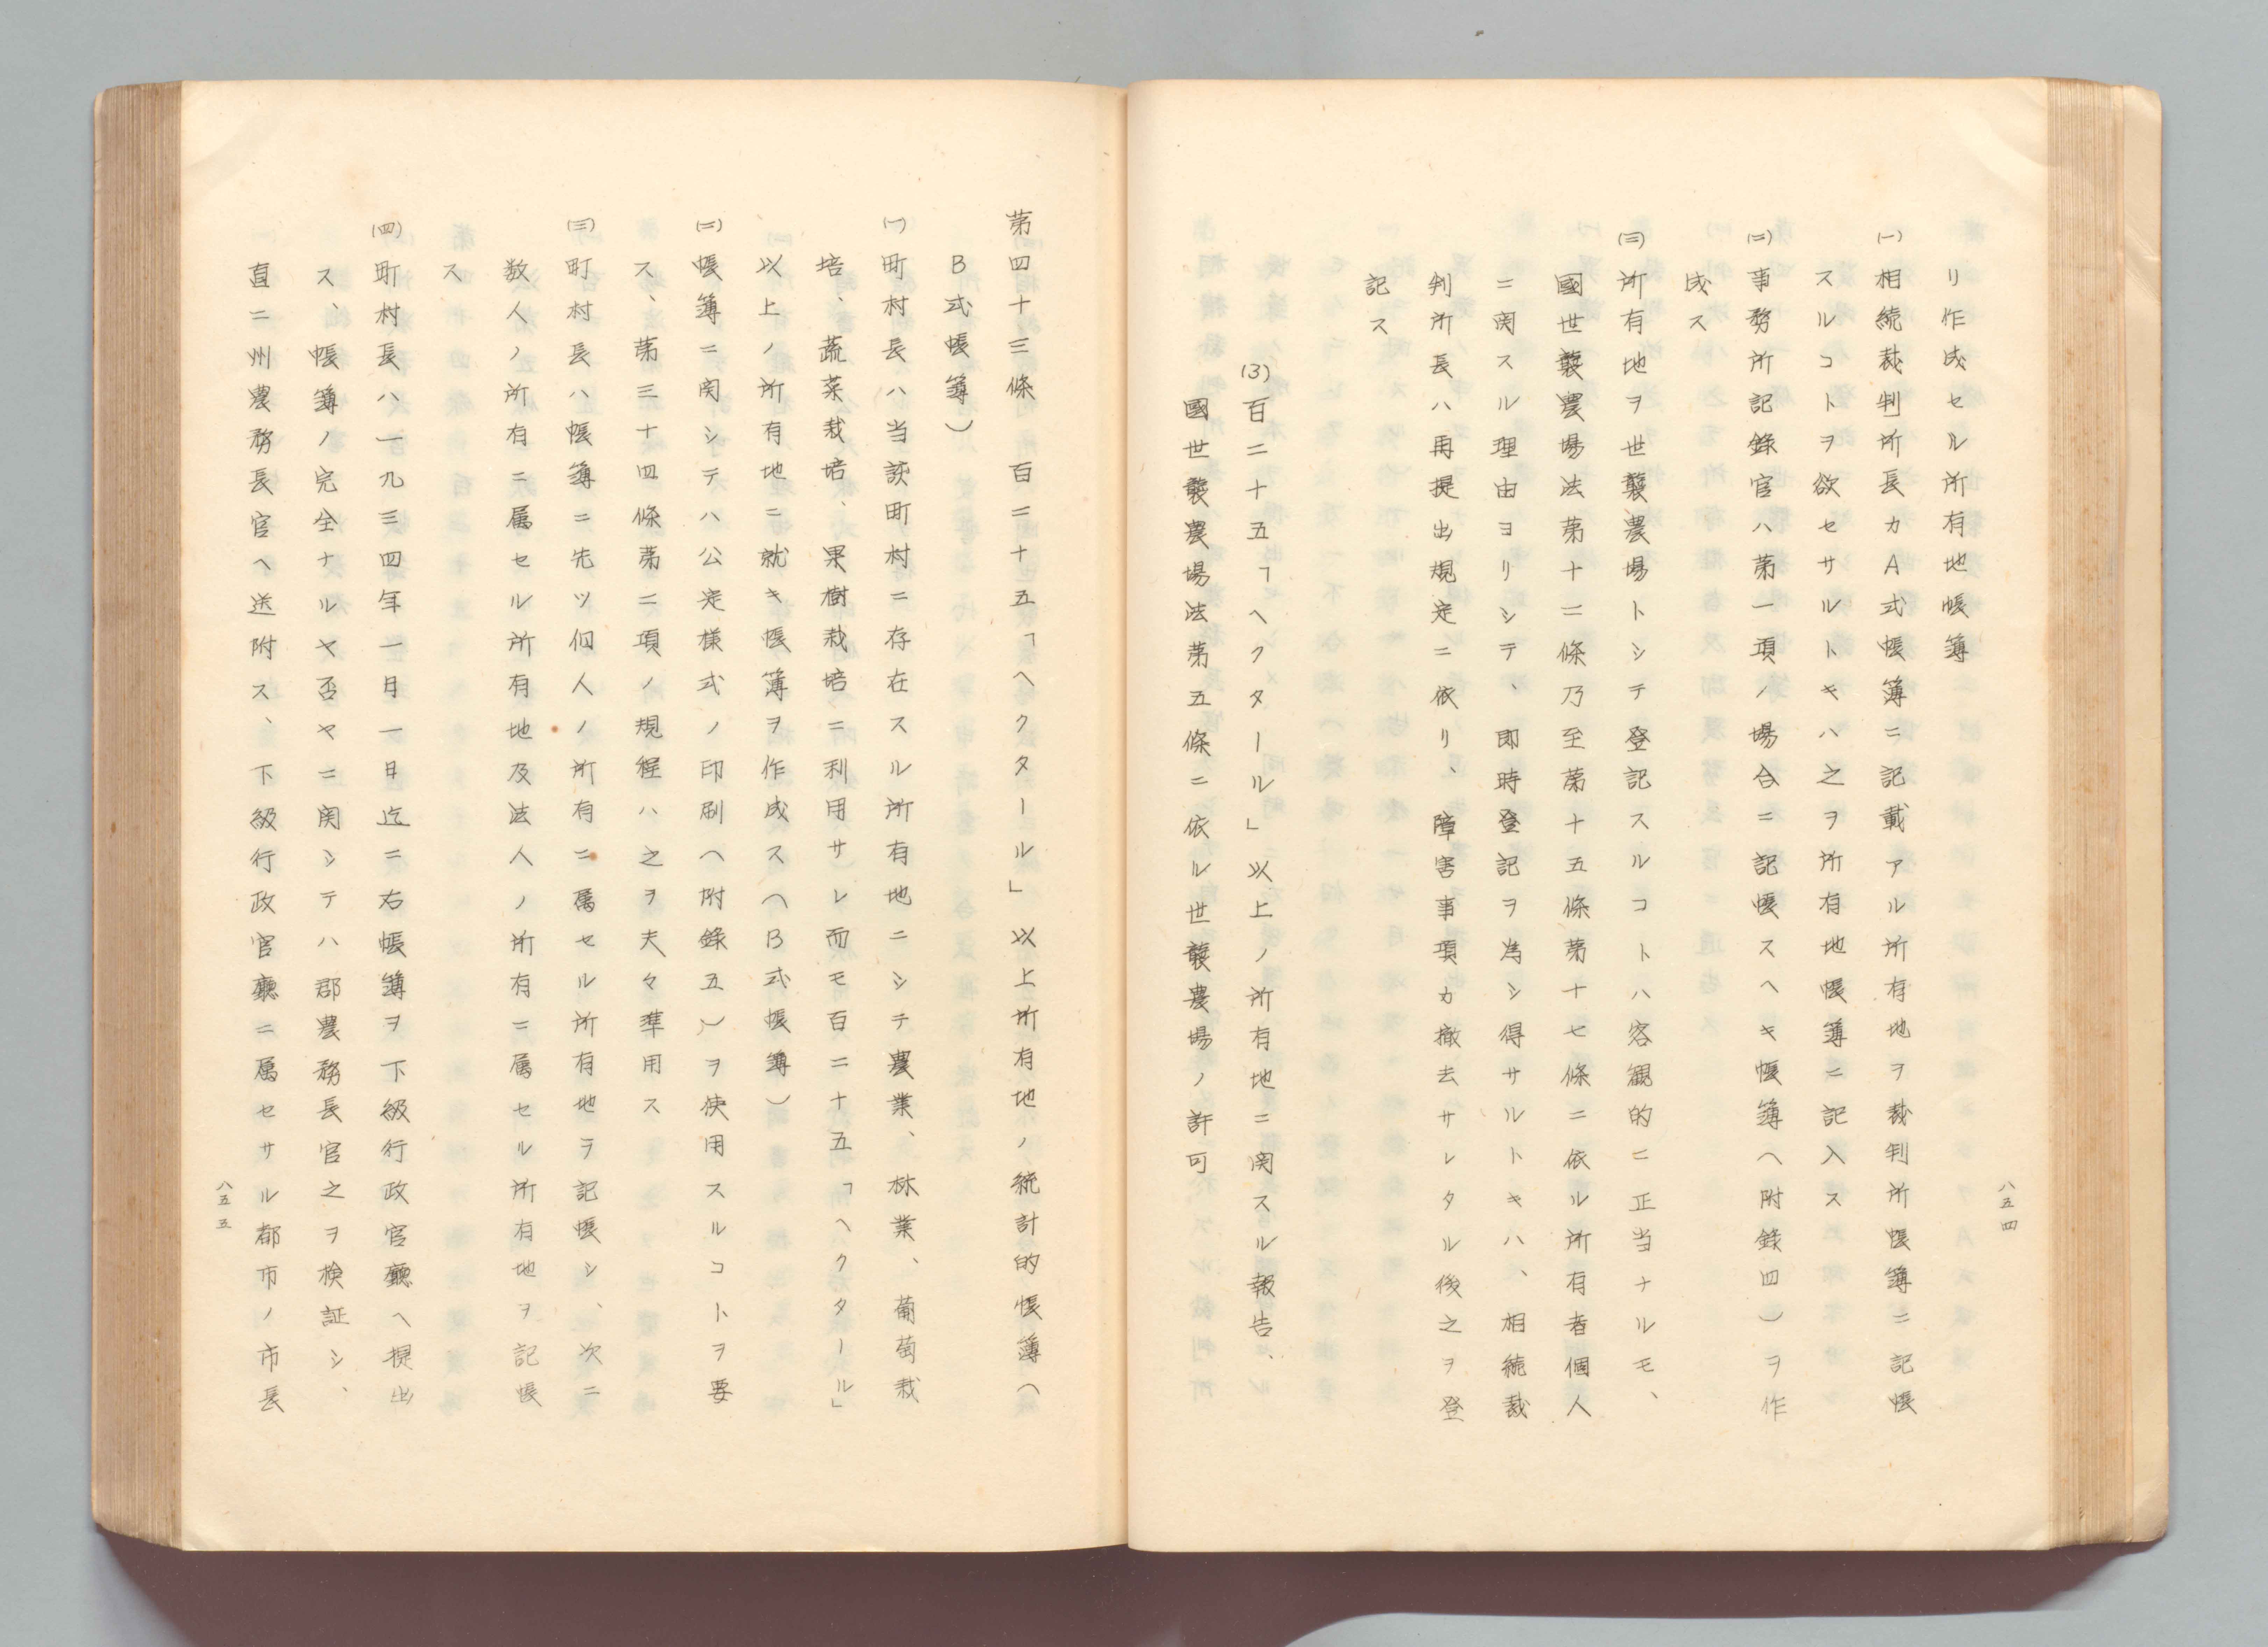 リ作成セル所有地帳簿
(一)相続裁判所長カA式帳簿ニ記載アル所有地ヲ裁判所帳簿ニ記帳
スルコトヲ欲セサルトキハ之ヲ所有地帳簿ニ記入ス
(二)事務所記錄官ハ第一項ノ場合ニ記帳スヘキ帳簿(附錄四)ヲ作
成ス
(三)所有地ヲ世襲農場トシテ登記スルコトハ客観的ニ正当ナルモ、
國世襲農場法第十二條乃至第十五條第十七條ニ依ル所有者個人
ニ関スル理由ヨリシテ、即時登記ヲ為シ得サルトキハ、相続裁
判所長ハ再提出規定ニ依リ、障害事項カ撤去サレタル後之ヲ登
記ス
(3)百二十五「ヘクタール」以上ノ所有地ニ関スル報告、
國世襲農場法第五條ニ依ル世襲農場ノ許可
八五四
第四十三條 百二十五「ヘクタール」以上所有地ノ統計的帳簿(
B式帳簿)
(一)町村長ハ当該町村ニ存在スル所有地ニシテ農業、林業、葡萄栽
培、蔬菜栽培、果樹栽培ニ利用サレ而モ百二十五「ヘクタール」
以上ノ所有地ニ就キ帳簿ヲ作成ス(B式帳簿)
(二)帳簿ニ関シテハ公定様式ノ印刷(附錄五)ヲ使用スルコトヲ要
ス、第三十四條第二項ノ規程ハ之ヲ夫々準用ス
(三)町村長ハ帳簿ニ先ツ個人ノ所有ニ属セル所有地ヲ記帳シ、次ニ
数人ノ所有ニ属セル所有地及法人ノ所有ニ属セル所有地ヲ記帳
ス
(四)町村長ハ一九三四年一月一日迄ニ右帳簿ヲ下級行政官廳ヘ提出
ス、帳簿ノ完全ナルヤ否ヤニ関シテハ郡農務長官之ヲ検証シ、
直ニ州農務長官ヘ送附ス、下級行政官廳ニ属セサル都市ノ市長
八五五